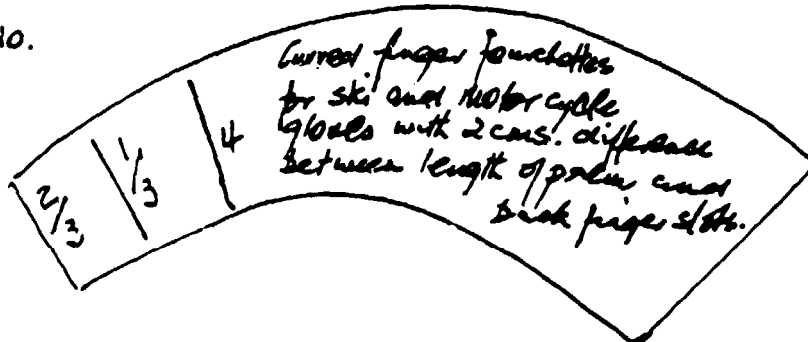 10.
Curved finger fourchettes
for ski and motor cycle
gloves with 2 cms. difference
between length of palm and
back finger slots.
2/3
1/3
4